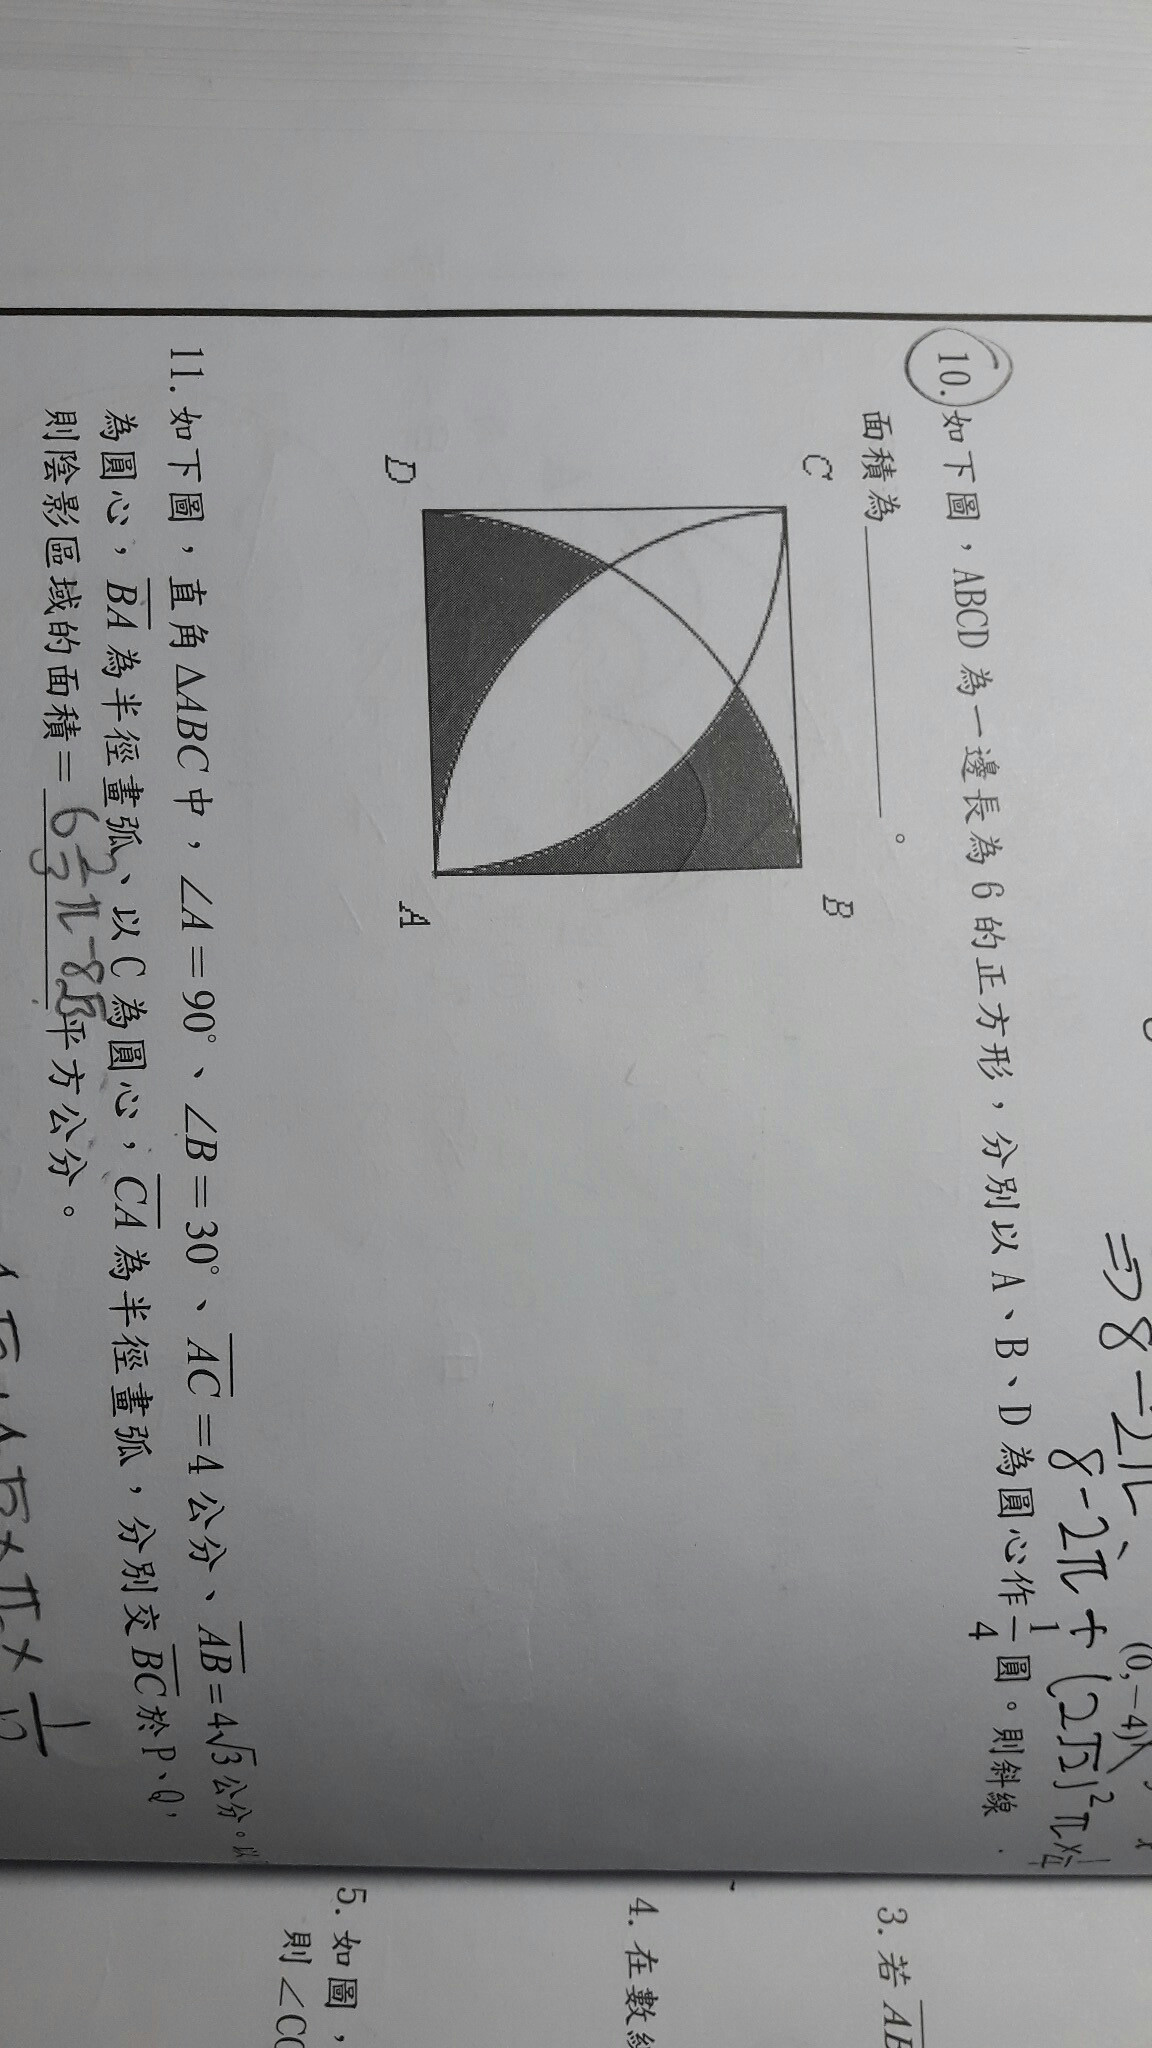 ⇒8-2π
(0,-4)
8-2π+(2√2)²π×1/4
10.如下圖，ABCD為一邊長為6的正方形，分別以A、B、D為圓心作1/4圓。則斜線
面積為________。
C
B
D
A
11.如下圖，直角△ABC中，∠A=90°、∠B=30°、AC=4公分、AB=4√3公分。以
為圓心，BA為半徑畫弧、以C為圓心，CA為半徑畫弧，分別交BC於P、Q，
則陰影區域的面積=6 2/3π-8√3平方公分。
3.若AB
4.在數線
5.如圖，
則∠CO